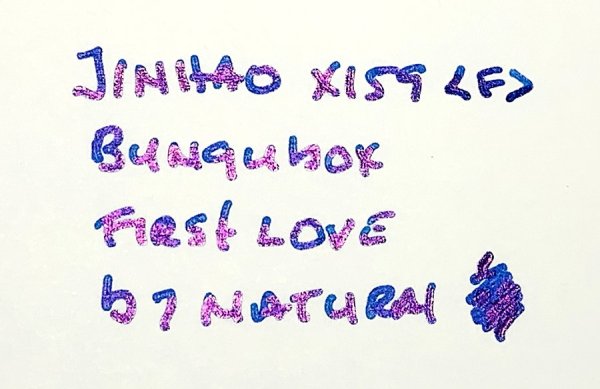 JINHAO X159 <F>
Bunqubox
FIRST LOVE
by NATURAl